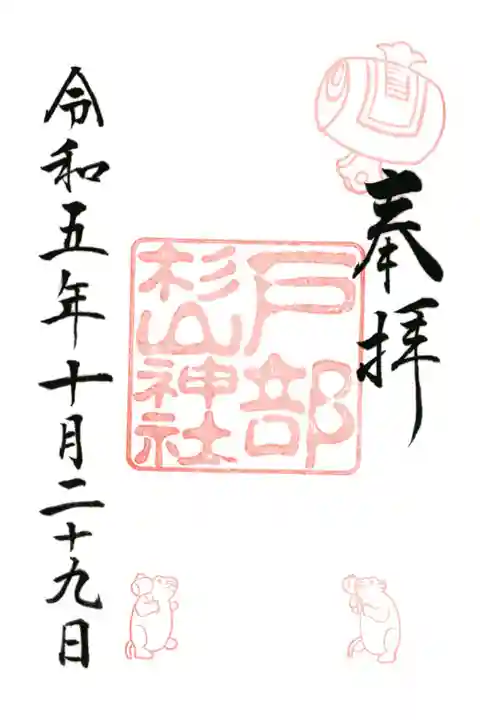 奉拝
戸部
杉山神社
令和五年十月二十九日